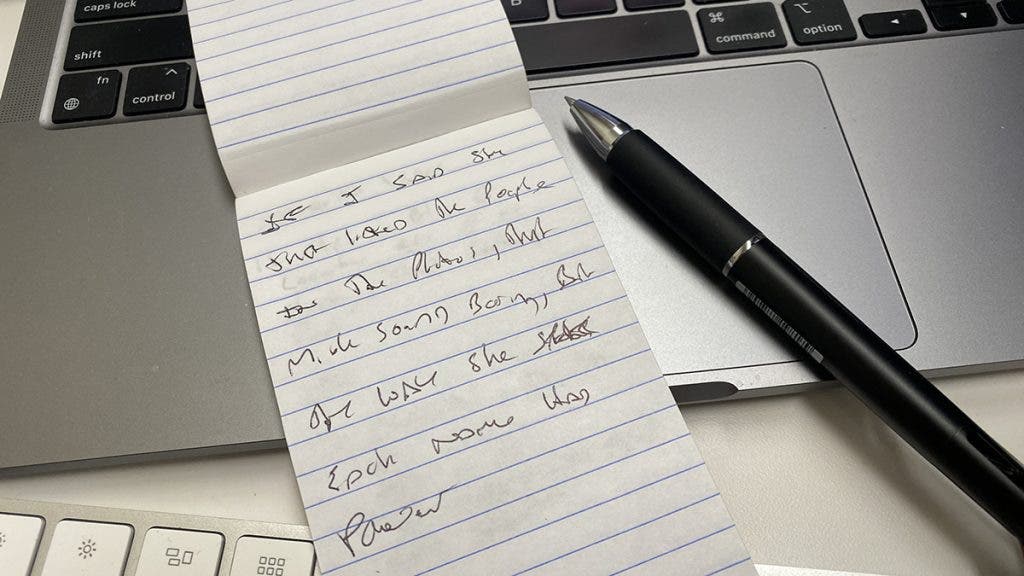 caps lock
shift
fn
control
B
⌘
command
⌥
option
IF I SAID She
JUST listed The People
The Photos, that
Might Sound Boring, But
The way She
Each Name Had
Power